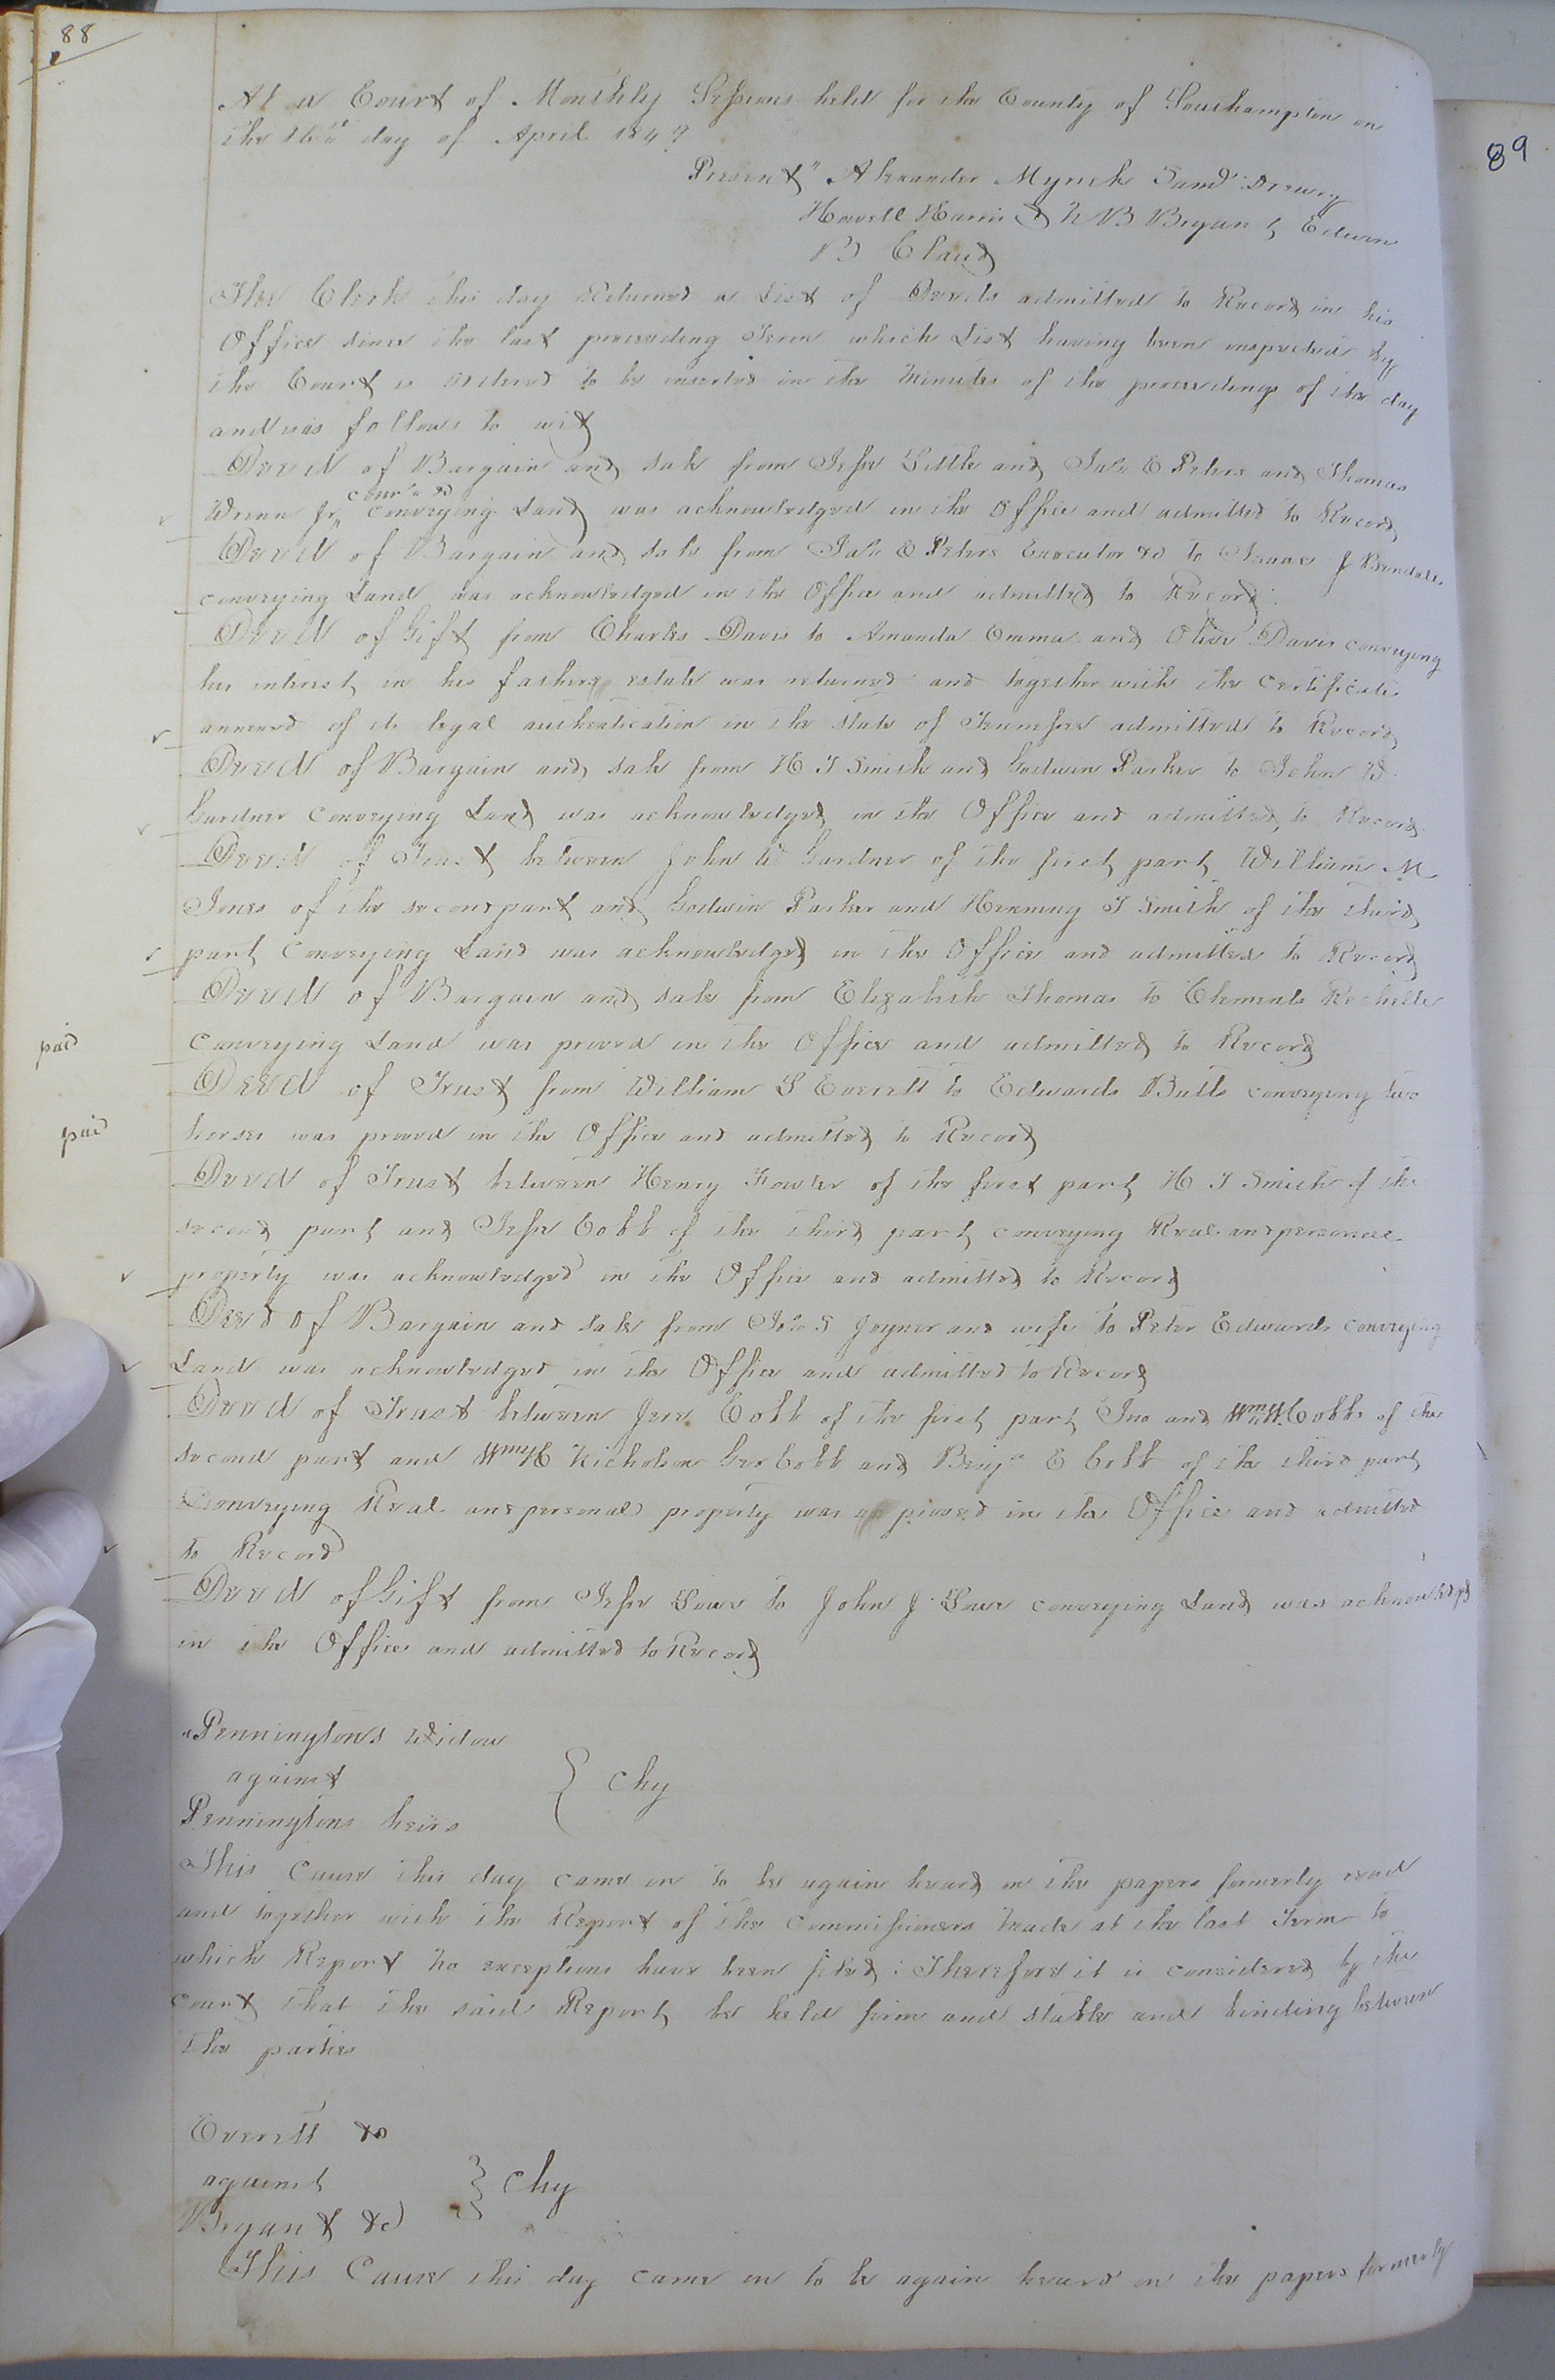 88
At a Court of Monthly Sessions held for the County of Southampton on
the 16th day of April 1849
Present" Alexander Myrick Saml Drewry
Howell Harris & N B Bryant, Edwin
B Claud
The Clerk this day Returned a List of Deeds admitted to Record in his
Office since the last preceeding Term which List having been inspected by
the Court is ordered to be inserted in the Minutes of the proceedings of the day
and is as follows to wit
Deed of Bargain and sale from Jesse Little and Jas E Peters and Thomas
comrs &c
Wrenn Jr conveying Land was acknowledged in the Office and admitted to Record
Deed of Bargain and sale from Jas E Peters Executor &c to Isaac J Bendall
conveying Land was acknowledged in the Office and admitted to Record
Deed of Gift from Charles Davis to Amanda Emma and Olive Davis conveying
his interest in his fathers estate was returned and together with the certificate
annexed of its legal authentication in the State of Tennessee admitted to Record
Deed of Bargain and sale from H T Smith and Godwin Parker to John W
Gardner Conveying Land was acknowledged in the Office and admitted to Record
Deed of Trust between John W Gardner of the first part William M
Jones of the second part and Godwin Parker and Henning T Smith of the third
part Conveying Land was acknowledged in the Office and admitted to Record
Deed of Bargain and sale from Elizabeth Thomas to Clements Rochelle
paid
conveying Land was proved in the Office and admitted to Record
Deed of Trust from William S Everett to Edwards Butts conveying two
paid
horses was proved in the Office and admitted to Record
Deed of Trust between Henry Fowler of the first part H T Smith of the
second part and Jesse Cobb of the third part conveying Real and personal
property was acknowledged in the Office and admitted to Record
Deed of Bargain and sale from Jos S Joyner and wife to Peter Edwards conveying
Land was acknowledged in the Office and admitted to Record
Deed of Trust between Jere Cobb of the first part Jno and Wm W. Cobbs of the
second part and Wm H Nicholson Geo Cobb and Benja E Cobb of the third part
Conveying Real and personal property was proved in the Office and admitted
to Record
Deed of Gift from Jesse to John J conveying Land was acknowledged
in the Office and admitted to Record
Penningtons Widow
against } Chy
Penningtons heirs
This Cause this day came on to be again heard on the papers formerly read
and together with the Report of the Commissioners made at the last Term to
which Report No exceptions have been filed: Therefore it is considered by the
court that the said Report be held firm and stable and binding between
the parties
Everett &c
against } Chy
Bryant &c
This Cause this day came on to be again heard on the papers formerly
89